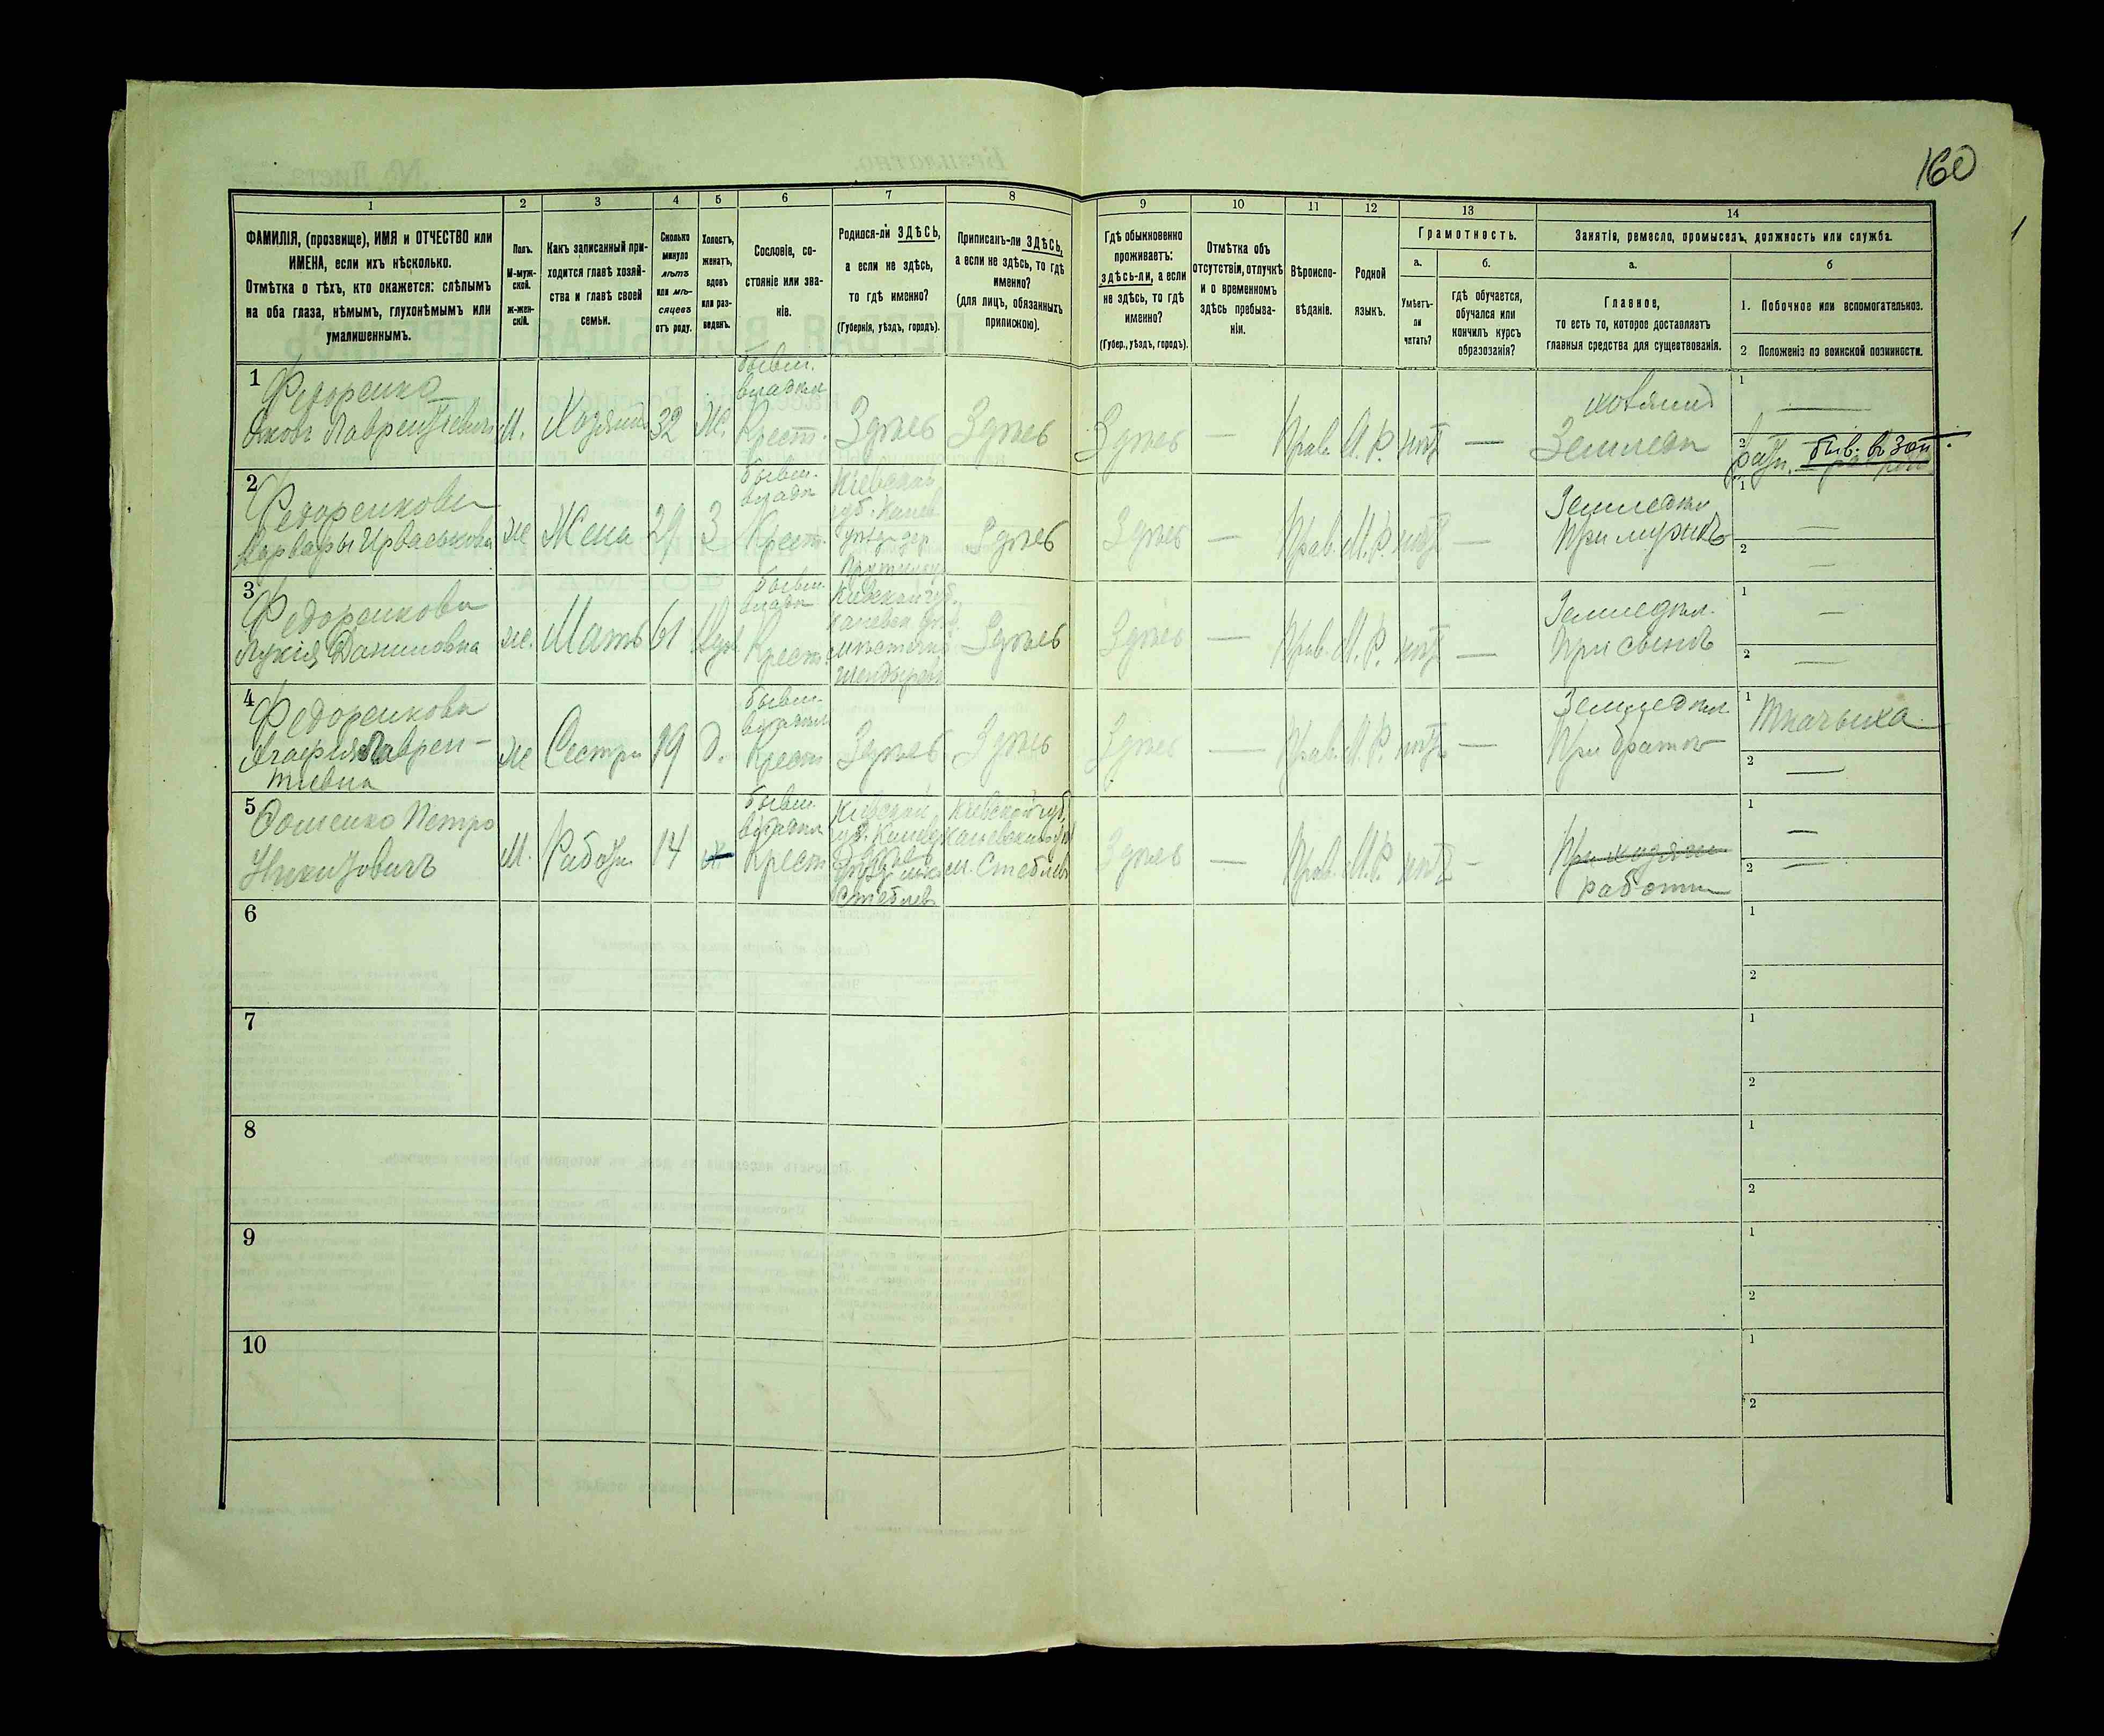 160
1
2
3
4
5
6
7
8
9
10
11
12
13
14
ФАМИЛІЯ, (прозвище), ИМЯ и ОТЧЕСТВО или
ИМЕНА, если ихъ нѣсколько.
Отмѣтка о тѣхъ, кто окажется: слѣпымъ
на оба глаза, нѣмымъ, глухонѣмымъ или
умалишеннымъ.
Полъ.
М-муж-
ской.
ж-жен-
скій.
Какъ записанный при-
ходится главѣ хозяй-
ства и главѣ своей
семьи.
Сколько
минуло
лѣтъ
или мѣ-
сяцевъ
отъ роду.
Холостъ,
женатъ,
вдовъ
или раз-
веденъ.
Сословіе, со-
стояніе или зва-
ніе.
Родился-ли ЗДѢСЬ,
а если не здѣсь,
то гдѣ именно?
(Губернія, уѣздъ, городъ).
Приписанъ-ли ЗДѢСЬ,
а если не здѣсь, то гдѣ
именно?
(для лицъ, обязанныхъ
припискою).
Гдѣ обыкновенно
проживаетъ:
здѣсь-ли, а если
не здѣсь, то гдѣ
именно?
(Губер., уѣздъ, городъ).
Отмѣтка объ
отсутствіи, отлучкѣ
и о временномъ
здѣсь пребыва-
ніи.
Вѣроиспо-
вѣданіе.
Родной
языкъ.
Грамотность.
а.
Умѣетъ-
ли
читать?
б.
гдѣ обучается,
обучался или
кончилъ курсъ
образованія?
Занятіе, ремесло, промыселъ, должность или служба.
а.
Главное,
то есть то, которое доставляетъ
главныя средства для существованія.
б
1. Побочное или вспомогательное.
2 Положеніе по воинской повинности.
1
Федоренко
Яковъ Лаврентіевичъ
М.
Хозяинъ
32
Ж.
бывш.
владѣл
Крест.
Здѣсь
Здѣсь
Здѣсь
—
Прав.
М. Р.
нѣтъ
—
хозяинъ
Землед
1
—
2
2
Федоренкова
Варвара
ж
Жена
29
З
бывш.
владѣл
Крест.
Кіевской
губ. Канев
уѣзд дер
Здѣсь
Здѣсь
—
Прав.
М. Р.
нѣтъ
—
Земледѣл
При мужѣ
1
—
2
—
3
Федоренкова
Лукія Даниловна
ж.
Мать
61
Вдов
бывш.
владѣл
Крест.
Кіевской губ.
каневск уѣзд
мѣстечко
Здѣсь
Здѣсь
—
Прав.
М. Р.
нѣтъ
—
Земледѣл.
При сынѣ
1
—
2
—
4
Федоренкова
Агафія Лаврен-
тіевна
ж
Сестра
19
д.
бывш.
владѣл
Крест
Здѣсь
Здѣсь
Здѣсь
—
Прав.
М. Р.
нѣтъ
—
Земледѣл.
При братѣ
1
Ткачыха
2
—
5
Петро
Никитовичъ
М.
Работн.
14
бывш.
владѣл
Крест
Кіевской
губ. Канев
уѣзд. мѣс
Стеблев
Кіевской губ.
Каневскаго у
м. Стеблев
Здѣсь
—
Прав.
М. Р.
нѣтъ
—
При хозяин
работн
1
—
2
—
6
1
2
7
1
2
8
1
2
9
1
2
10
1
2